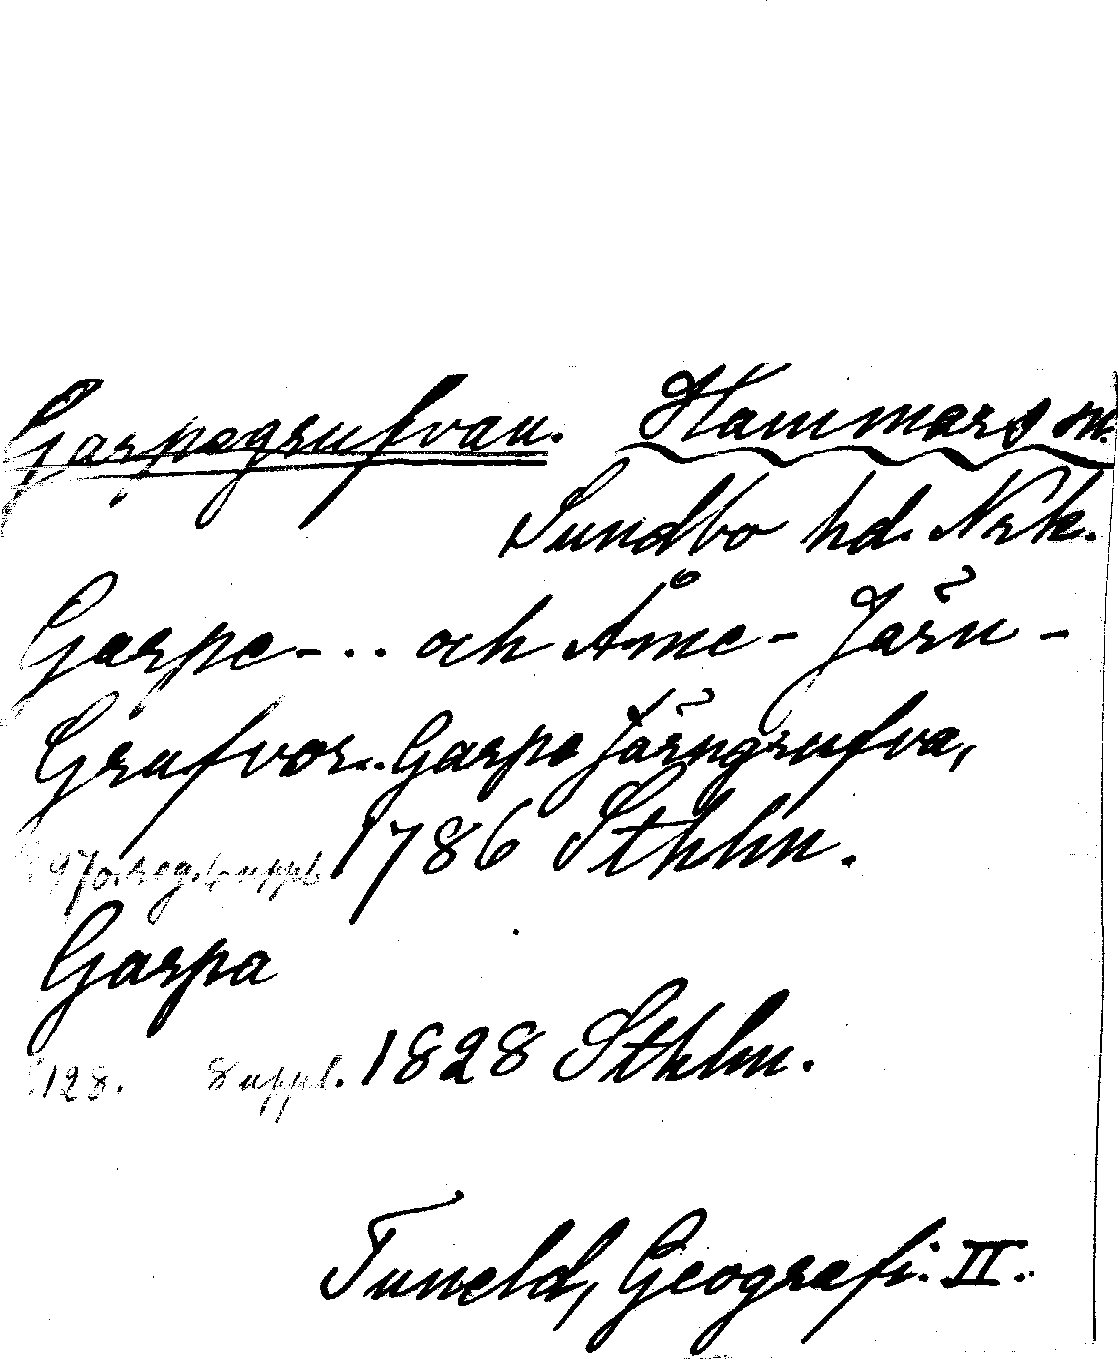 Garpagrufvan. Hammars sn.
Sundbo hd. Nrk.
Garpe- .. och Åme- Järn-
Grufvor.. Garpa Järngrufva,
1786 Sthlm.
Garpa
128. Suppl. 1828 Sthlm.
Tuneld, Geografi. II.